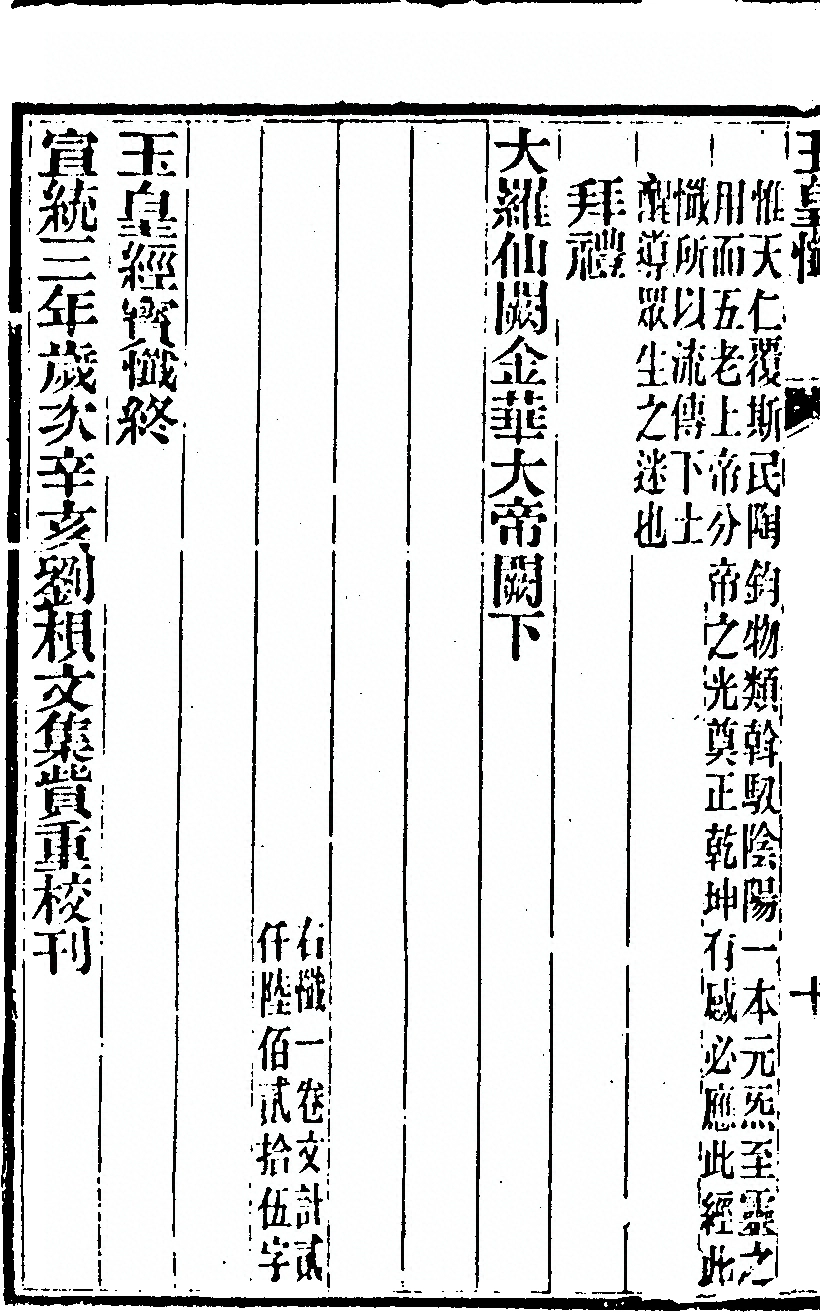 玉皇懺
十
惟天仁覆斯民陶鈞物類斡馭陰陽一本元炁至靈之
用而五老上帝分帝之光奠正乾坤有感必應此經此
懺所以流傳下土
醒導眾生之迷也
拜禮
大羅仙闕金華大帝闕下
右懺一卷文計貳
仟陸佰貳拾伍字
玉皇經寳懺終
宣統三年歲次辛亥劉棋文集貲重校刊